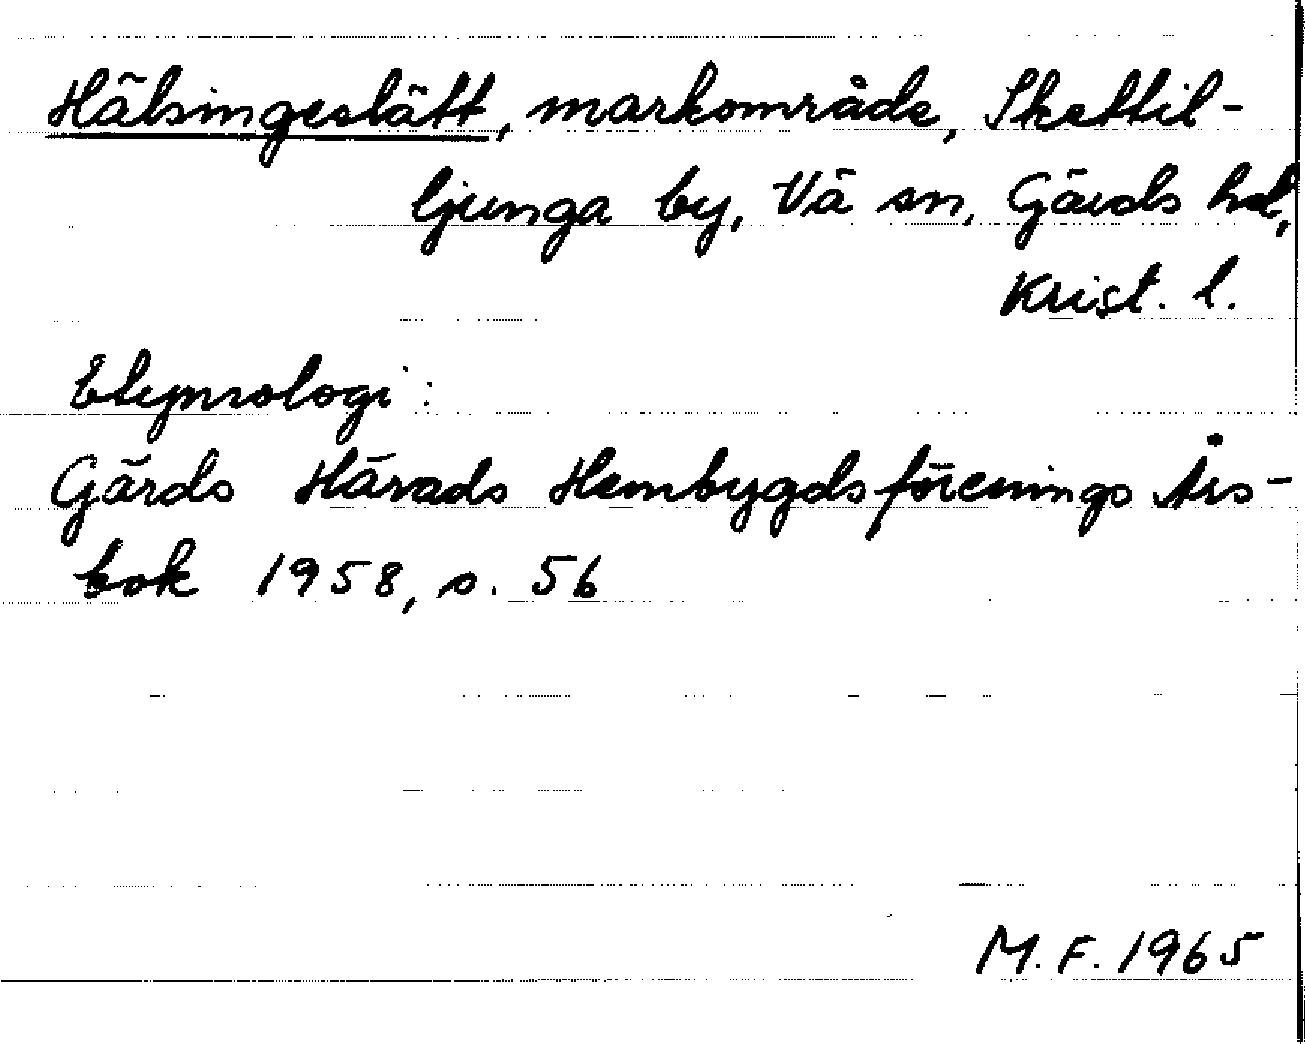 Hälsingeslätt, markområde, Skettil-
ljunga by, Vä sn, Gärds hd,
Krist. l.
Etymologi:
Gärds Härads Hembygdsförenings Års-
bok 1958, s. 56
M.F. 1965